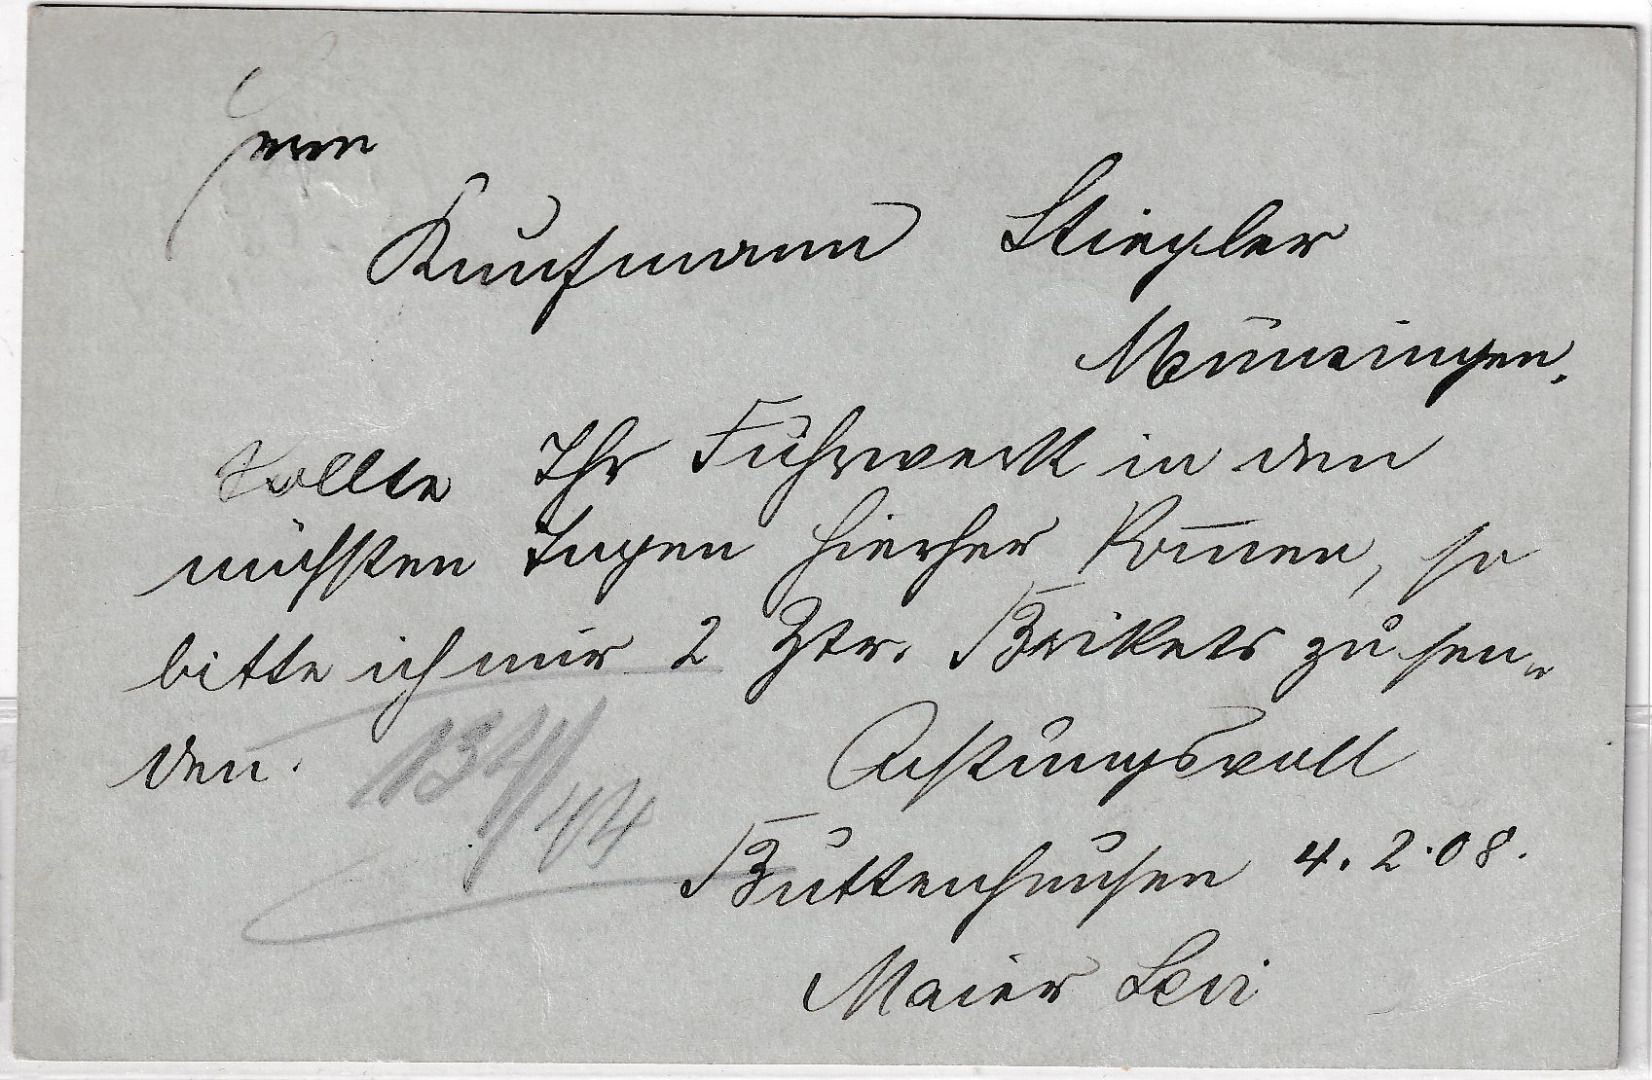 Herrn
Kaufmann Stiegler
Münsingen.
Sollte Ihr Fuhrwerk in den
nächsten Tagen hierher kom̅en, so
bitte ich mir 2 Ztr. Brikets zu sen„
den.
Achtungsvoll
Buttenhausen 4.2.08.
Maier Levi
134/44